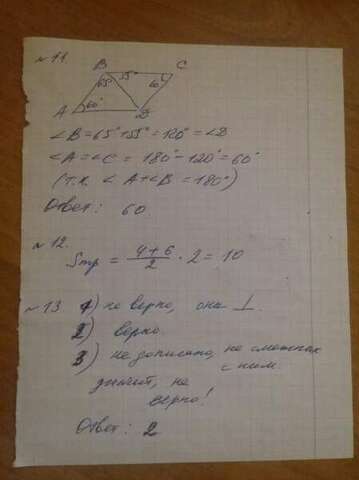 № 11.
B 55° C
65° 60°
A 60° D
∠B = 65° + 55° = 120° = ∠D
∠A = ∠C = 180° - 120° = 60°
(т.к. ∠A + ∠B = 180°)
Ответ: 60.
№ 12.
Sтр = (4+6)/2 · 2 = 10
№ 13 1) не верно, они ⊥.
2) верно.
3) не записано, не смежных
с ним.
значит, не
верно!
Ответ: 2